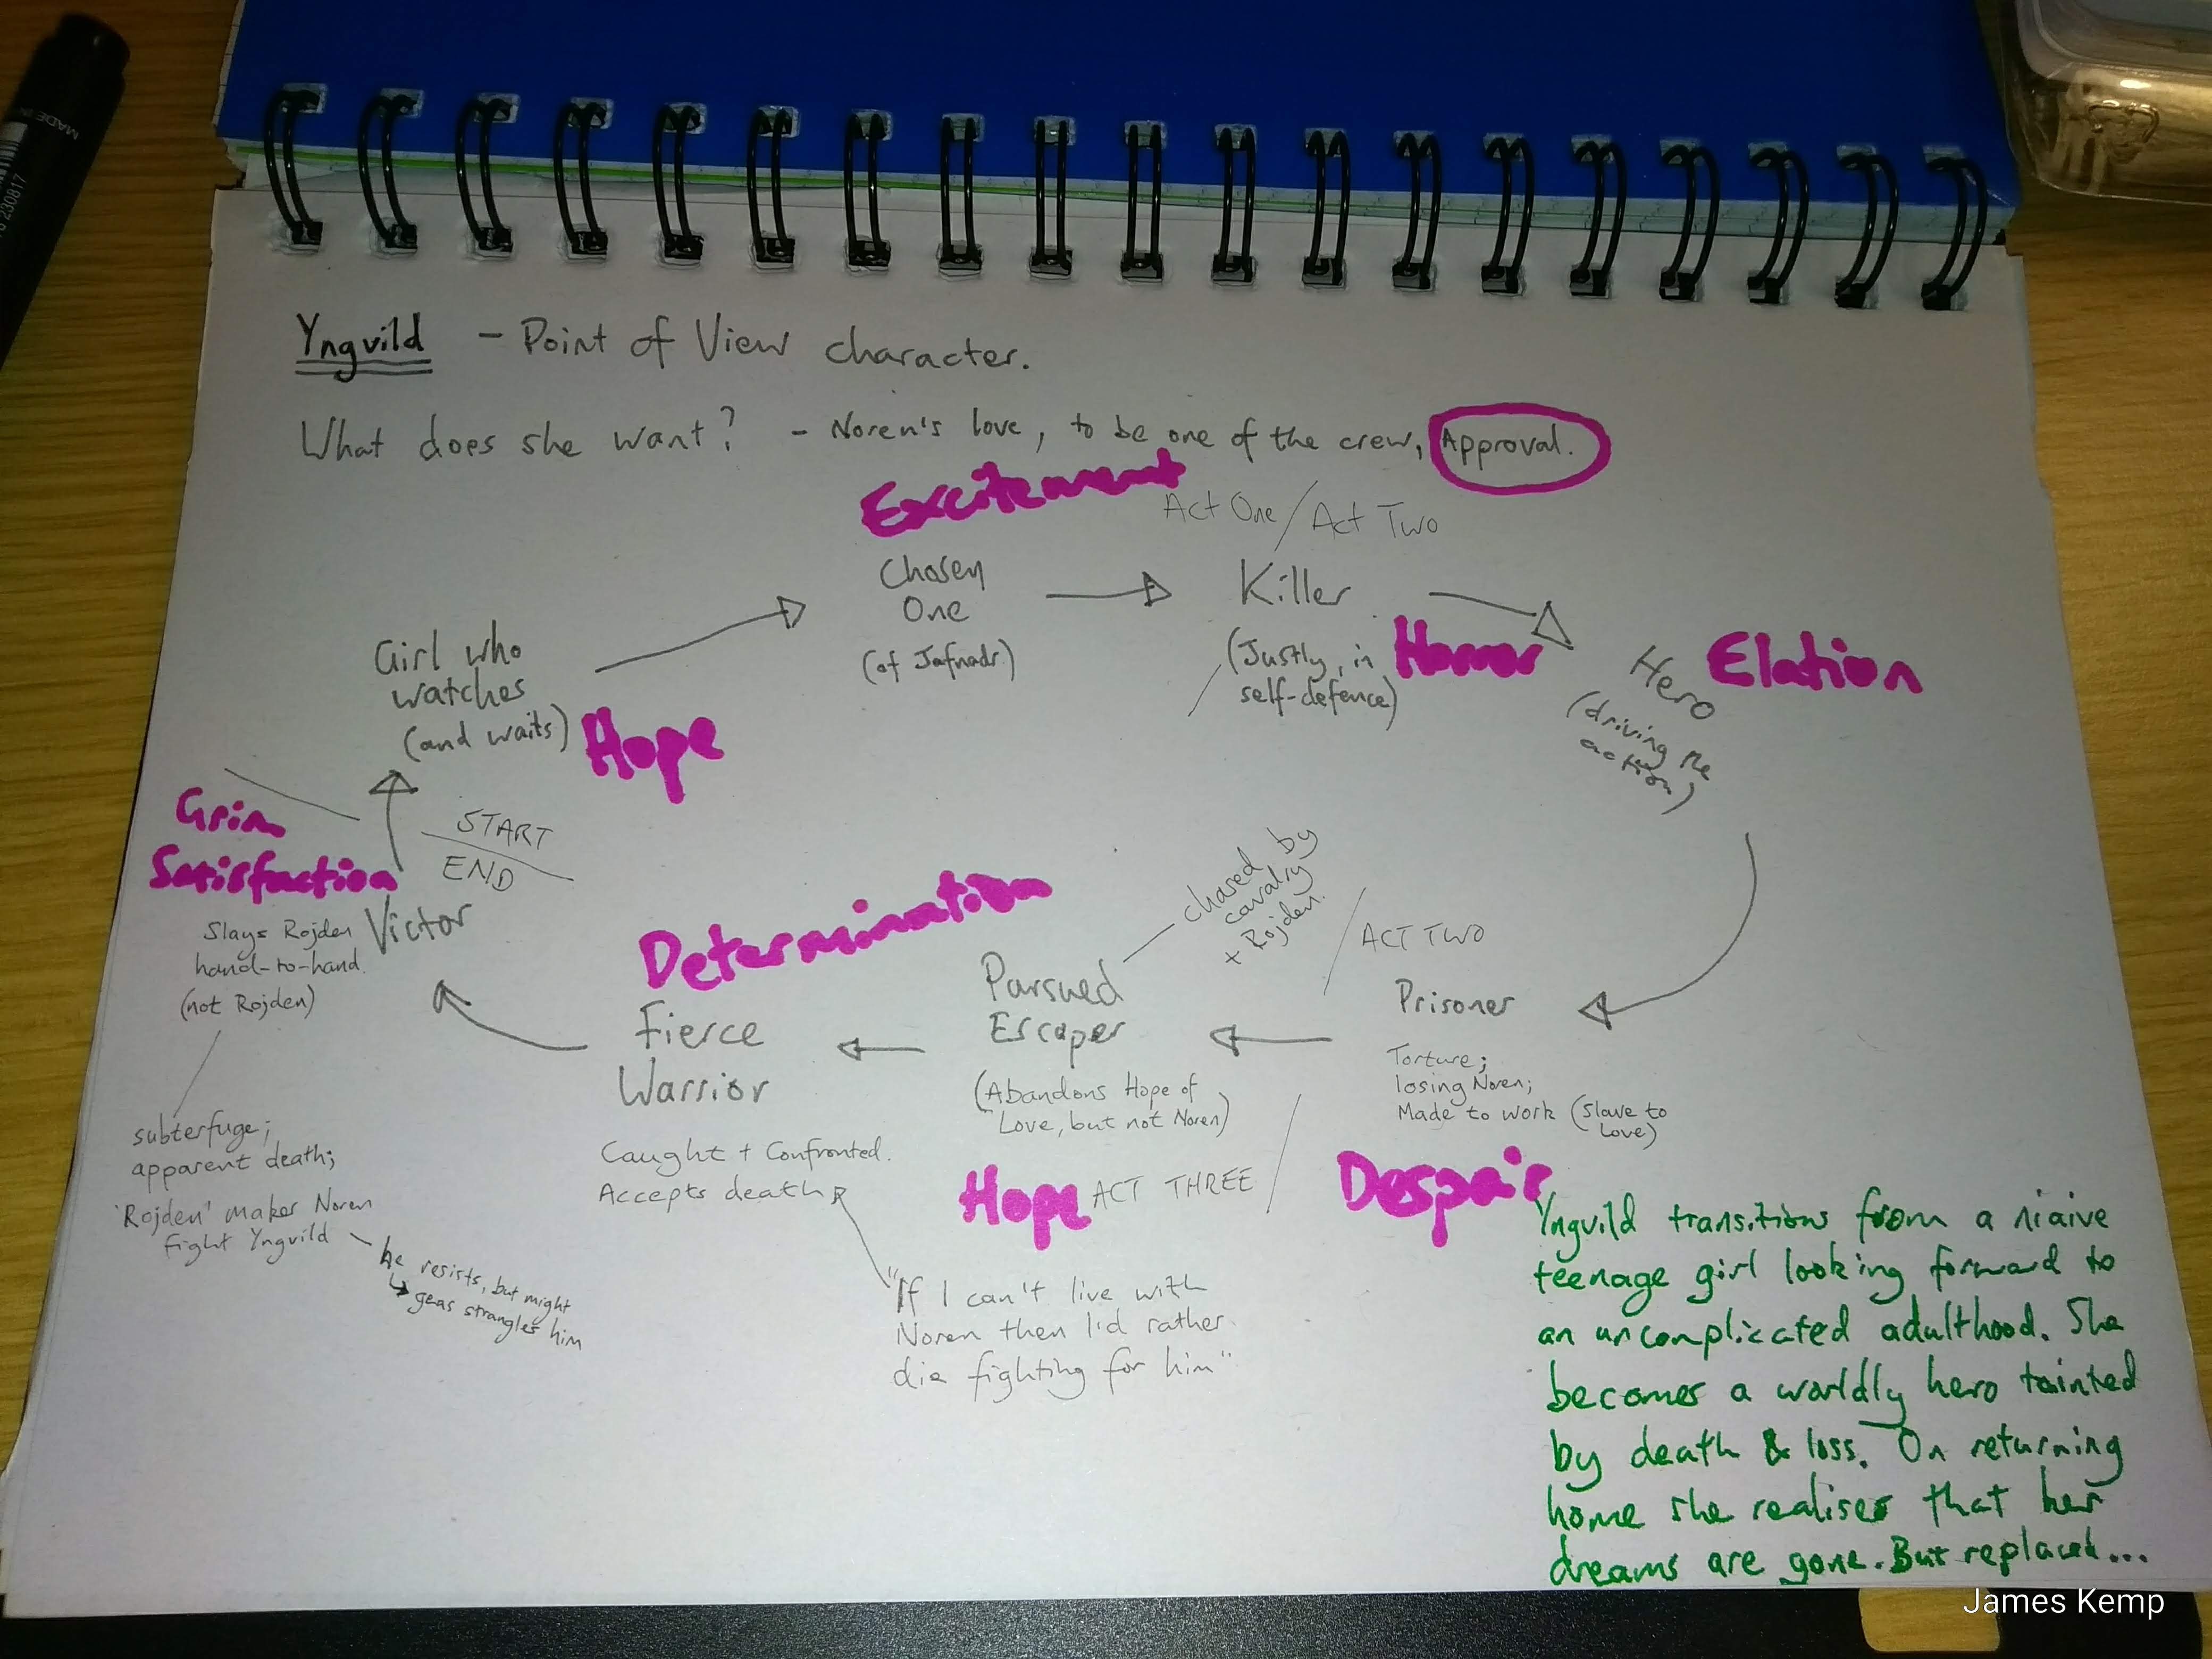 MADE IN
230817
Yngvild - Point of View character.
What does she want? - Noren's love, to be one of the crew, Approval.
Excitement
Act One / Act Two
Chosen
One
(of Jafnadr)
Killer
(Justly, in
self-defence)
Horror
Hero
(driving the
action)
Elation
Girl who
watches
(and waits)
Hope
START
END
Grim
Satisfaction
Victor
Slays Rojden
hand-to-hand.
(not Rojden)
subterfuge;
apparent death;
'Rojden' makes Noren
fight Yngvild
he resists, but might
geas strangles him
Determination
Fierce
Warrior
Caught + Confronted.
Accepts death
"If I can't live with
Noren then I'd rather
die fighting for him"
chased by
cavalry
+ Rojden.
Pursued
Escaper
(Abandons Hope of
Love, but not Noren)
Hope
ACT THREE
ACT TWO
Prisoner
Torture;
losing Noren;
Made to work (slave to
love)
Despair
Yngvild transitions from a niaive
teenage girl looking forward to
an uncomplicated adulthood. She
becomes a worldly hero tainted
by death & loss. On returning
home she realises that her
dreams are gone. But replaced...
James Kemp